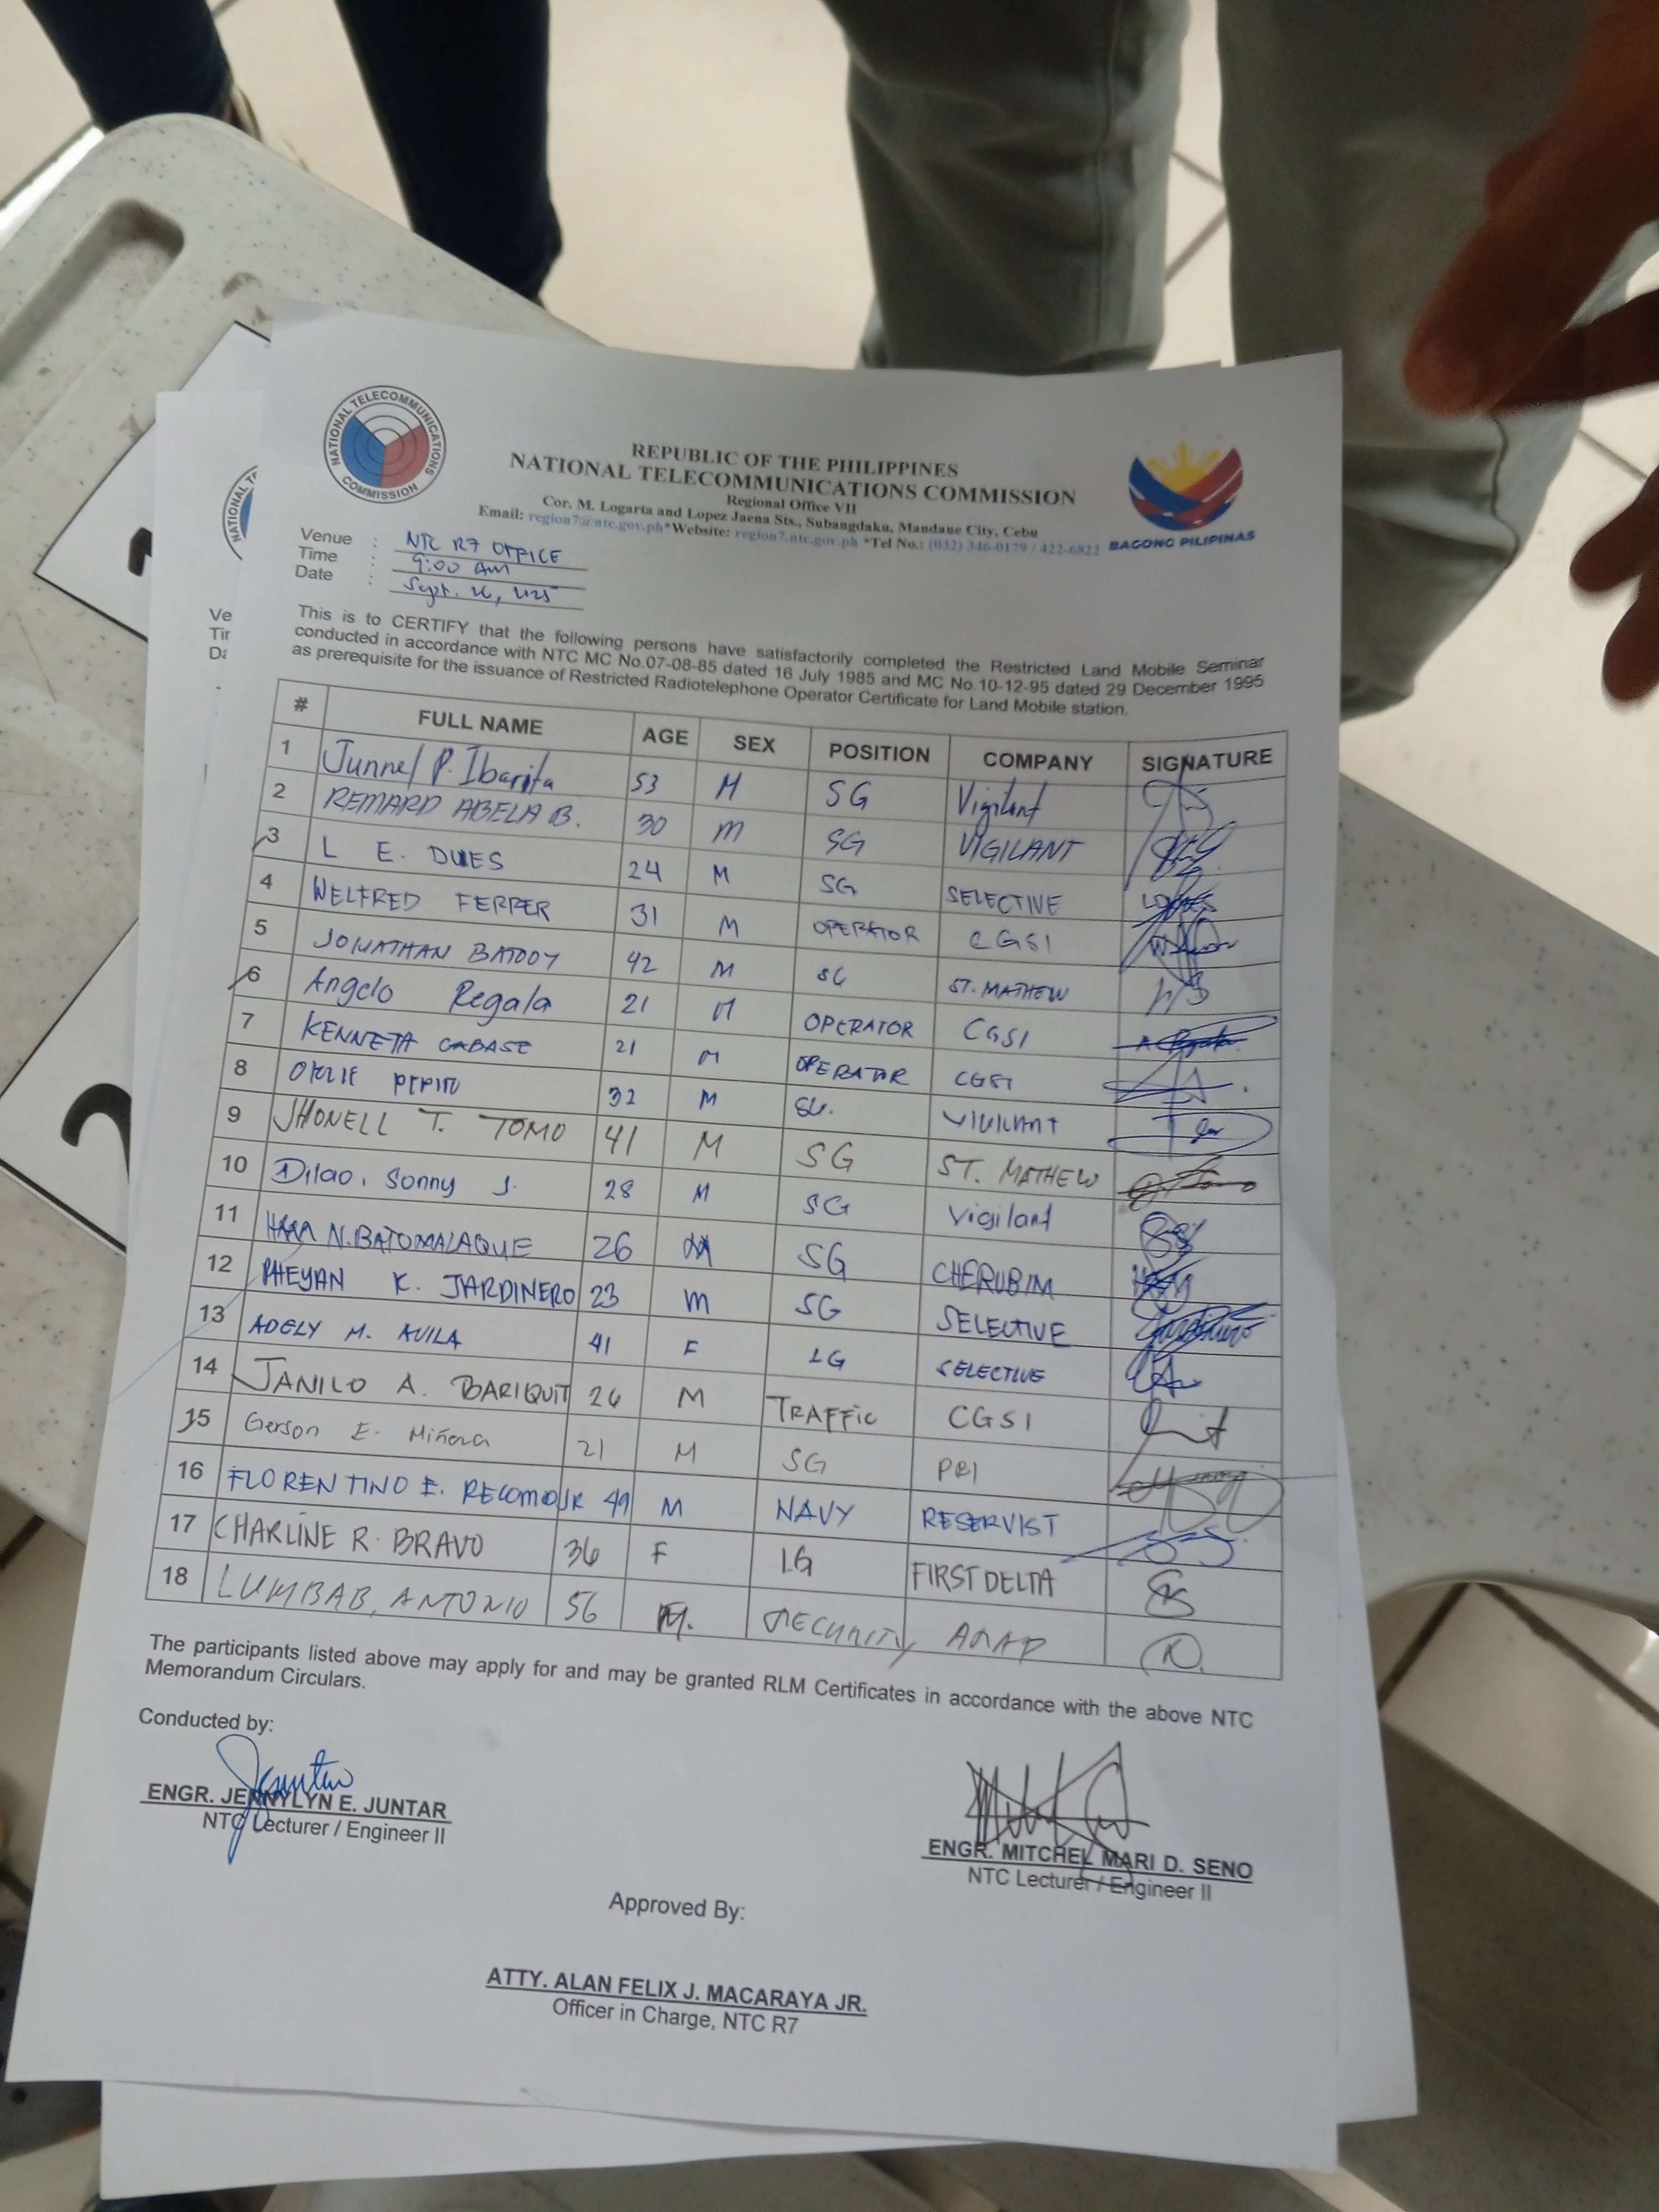 NATIONAL TELECOMMUNICATIONS COMMISSION
REPUBLIC OF THE PHILIPPINES
NATIONAL TELECOMMUNICATIONS COMMISSION
Regional Office VII
Cor. M. Logarta and Lopez Jaena Sts., Subangdaku, Mandaue City, Cebu
Email: region7@ntc.gov.ph*Website: region7.ntc.gov.ph *Tel No.: (032) 346-0179 / 422-6822
BAGONG PILIPINAS
Venue : NTC R7 OFFICE
Time : 9:00 AM
Date : Sept. 26, 2025
This is to CERTIFY that the following persons have satisfactorily completed the Restricted Land Mobile Seminar
conducted in accordance with NTC MC No.07-08-85 dated 16 July 1985 and MC No.10-12-95 dated 29 December 1995
as prerequisite for the issuance of Restricted Radiotelephone Operator Certificate for Land Mobile station.
# FULL NAME AGE SEX POSITION COMPANY SIGNATURE
1 Junnel P. Ibarita 53 M SG Vigilant
2 REMARD ABELA B. 30 M SG VIGILANT
3 L E. DUES 24 M SG SELECTIVE
4 WELFRED FERRER 31 M OPERATOR CGSI
5 JONATHAN 42 M SG ST. MATHEW
6 Angelo Regala 21 M OPERATOR CGSI
7 KENNETH CABASE 21 M OPERATOR CGSI
8 PEPITO 32 M SG. VIGILANT
9 JHONELL T. TOMO 41 M SG ST. MATHEW
10 Dilao, Sonny J. 28 M SG Vigilant
11 N. BATOMALAQUE 26 M SG CHERUBIM
12 RHEYAN K. JARDINERO 23 M SG SELECTIVE
13 ADELY M. AVILA 41 F LG SELECTIVE
14 JANILO A. BARIQUIT 26 M TRAFFIC CGSI
15 Gerson E. Miñoza 21 M SG PBI
16 FLORENTINO E. RECOMO JR 49 M NAVY RESERVIST
17 CHARLINE R. BRAVO 36 F LG FIRST DELTA
18 LUMBAB, ANTONIO 56 M. SECURITY
The participants listed above may apply for and may be granted RLM Certificates in accordance with the above NTC
Memorandum Circulars.
Conducted by:
ENGR. JENNYLYN E. JUNTAR
NTC Lecturer / Engineer II
ENGR. MITCHEL MARI D. SENO
NTC Lecturer / Engineer II
Approved By:
ATTY. ALAN FELIX J. MACARAYA JR.
Officer in Charge, NTC R7